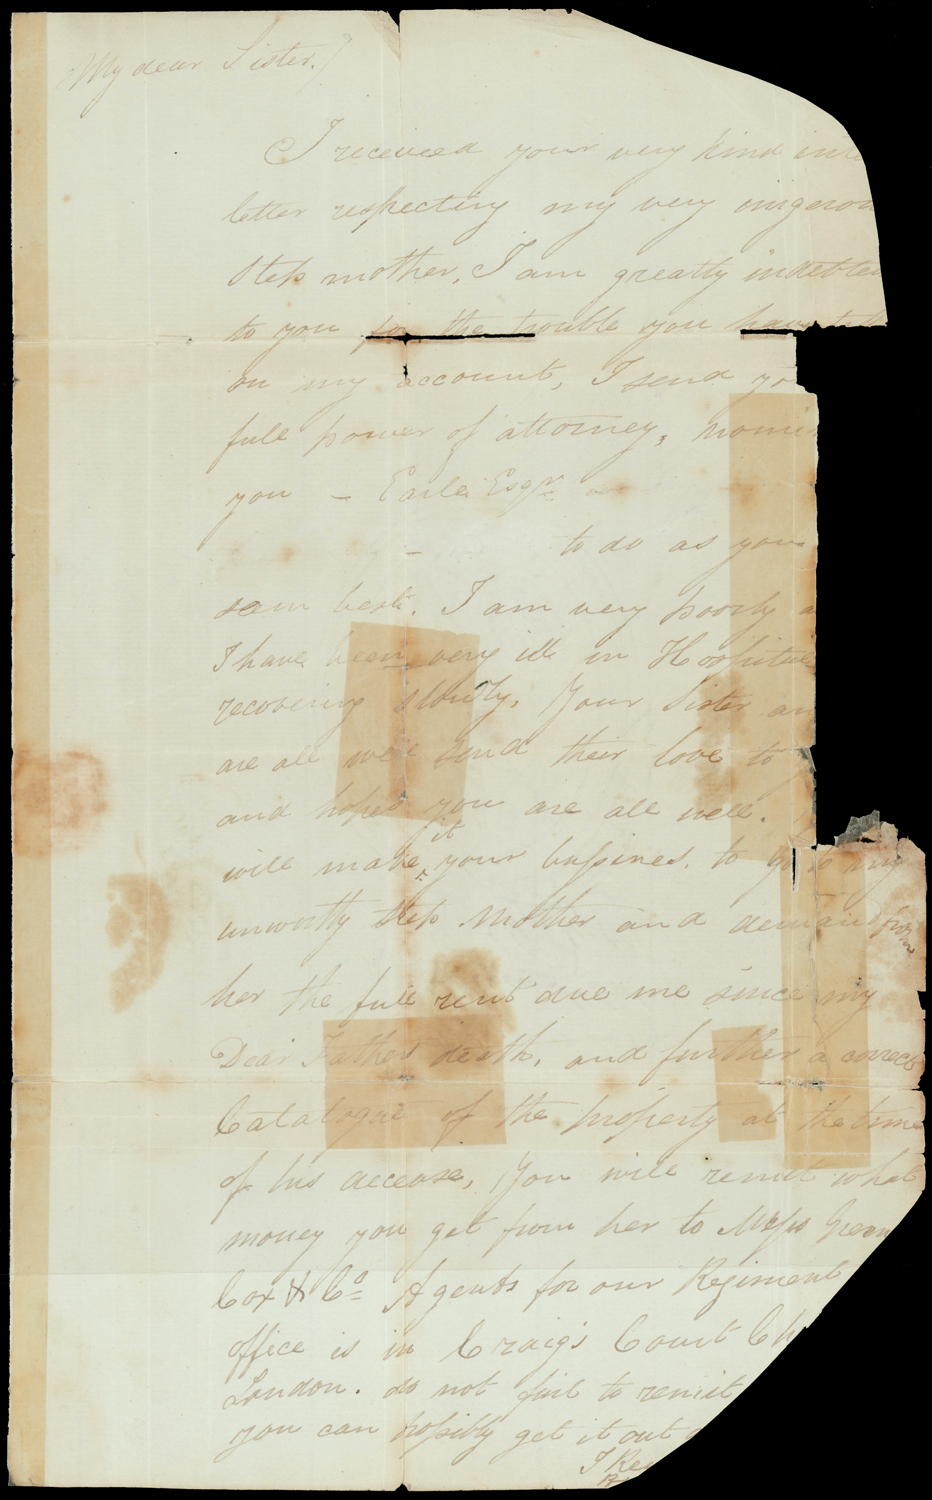 My dear Sister.
I received your very kind
letter respecting my very
Step mother, I am greatly indebted
to you for the trouble you have
on my account, I send
full power of attorney,
you – Earle Esqr.
to do as you
seem best. I am very poorly
I have been very ill in Hospital
recovering slowly. Your Sister an
are all well send their love to
and hopes you are all well.
will make it your bussiness. to go to my
unworthy step Mother and demand from
her the full rent due me since my
Dear Father death, and further a correct
Catalogue of the property at the time
of his decease, You will remit what
money you get from her to Messs Green
Cox & Co Agents for our Regiment
office is in Craig's Court Ch
London. do not fail to remit
you can possibly get it out
I Re